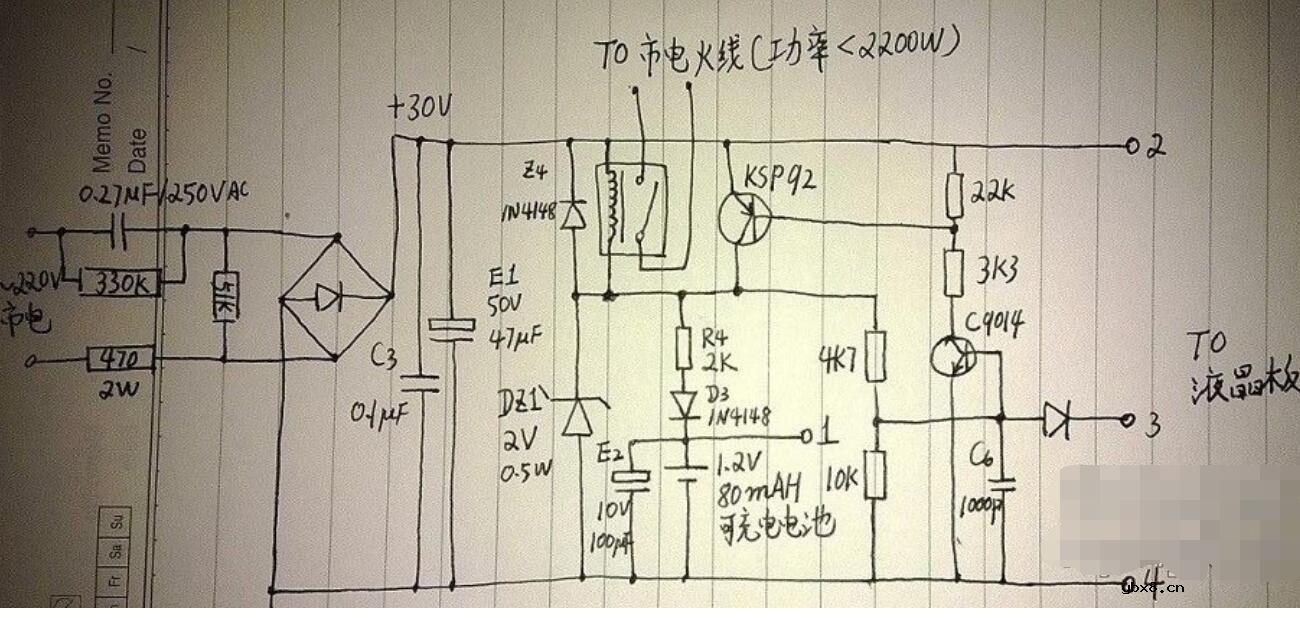 TO 市电火线(功率<2200W)
Memo No.
Date /
+30V
2
0.27μF/250VAC
Z4
1N4148
KSP92
22K
330K
~220V
市电
51K
E1
50V
47μF
3K3
C9014
470
2W
C3
0.1μF
R4
2K
4K7
TO
液晶板
DZ1
2V
0.5W
D3
1N4148
1
3
E2
10V
100μF
1.2V
80mAH
可充电电池
10K
C6
1000P
Su
Sa
Fr
4
ybx8.cn